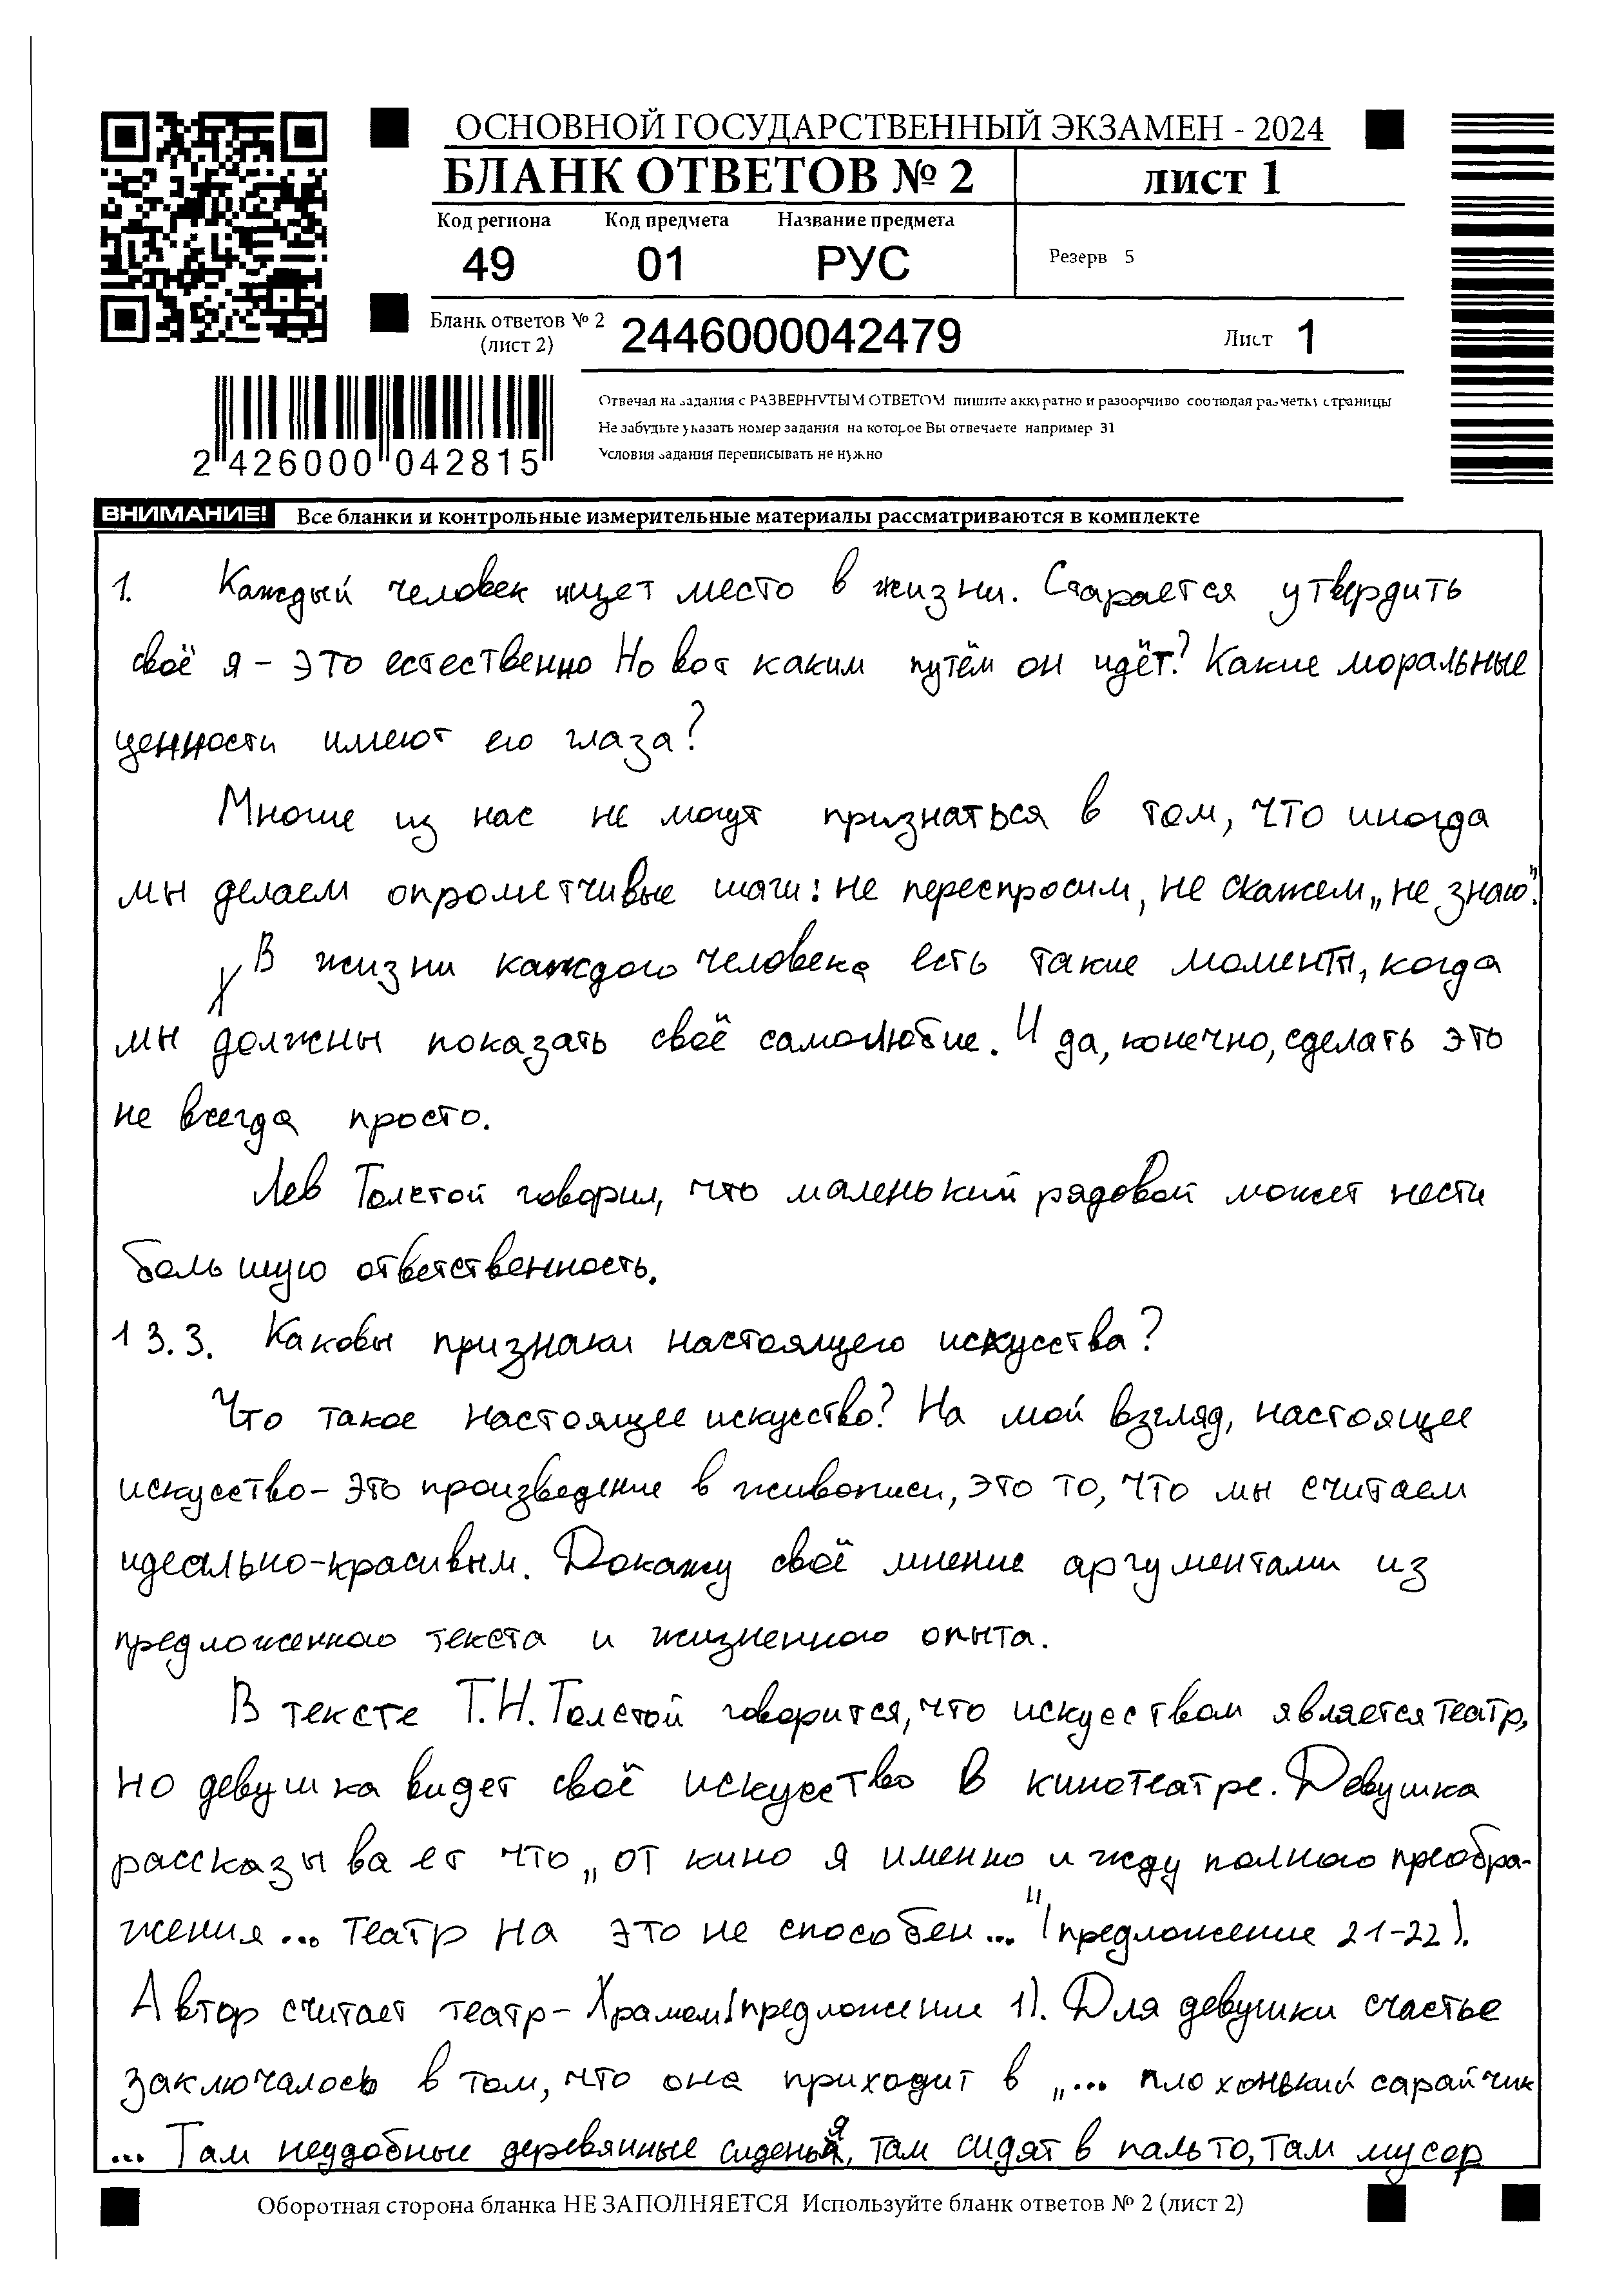 ОСНОВНОЙ ГОСУДАРСТВЕННЫЙ ЭКЗАМЕН - 2024
БЛАНК ОТВЕТОВ № 2
лист 1
Код региона Код предмета Название предмета
49 01 РУС
Резерв 5
Бланк ответов № 2
(лист 2)
2446000042479
Лист 1
2 426000 042815
Отвечая на задания с РАЗВЕРНУТЫМ ОТВЕТОМ пишите аккуратно и разборчиво соблюдая разметку страницы
Не забудьте указать номер задания на которое Вы отвечаете например 31
Условия задания переписывать не нужно
ВНИМАНИЕ! Все бланки и контрольные измерительные материалы рассматриваются в комплекте
1. Каждый человек ищет место в жизни. Старается утвердить
своё я - это естественно Но вот каким путём он идёт? Какие моральные
ценности имеют его глаза?
Многие из нас не могут признаться в том, что иногда
мы делаем опрометчивые шаги: не переспросим, не скажем „не знаю".
В жизни каждого человека есть такие моменты, когда
мы должны показать своё самолюбие. И да, конечно, сделать это
не всегда просто.
Лев Толстой говорил, что маленький рядовой может нести
большую ответственность.
13.3. Каковы признаки настоящего искусства?
Что такое настоящее искусство? На мой взгляд, настоящее
искусство - это произведение в живописи, это то, что мы считаем
идеально-красивым. Докажу своё мнение аргументами из
предложенного текста и жизненного опыта.
В тексте Т.Н. Толстой говорится, что искусством является театр,
но девушка видет своё искусство в кинотеатре. Девушка
рассказывает что „от кино я именно и жду полного преобра-
жения... театр на это не способен..." (предложение 21-22).
Автор считает театр - Храмом (предложение 1). Для девушки счастье
заключалось в том, что она приходит в „... плохонький сарайчик
... Там неудобные деревянные сиденья, там сидят в пальто, там мусор
Оборотная сторона бланка НЕ ЗАПОЛНЯЕТСЯ Используйте бланк ответов № 2 (лист 2)